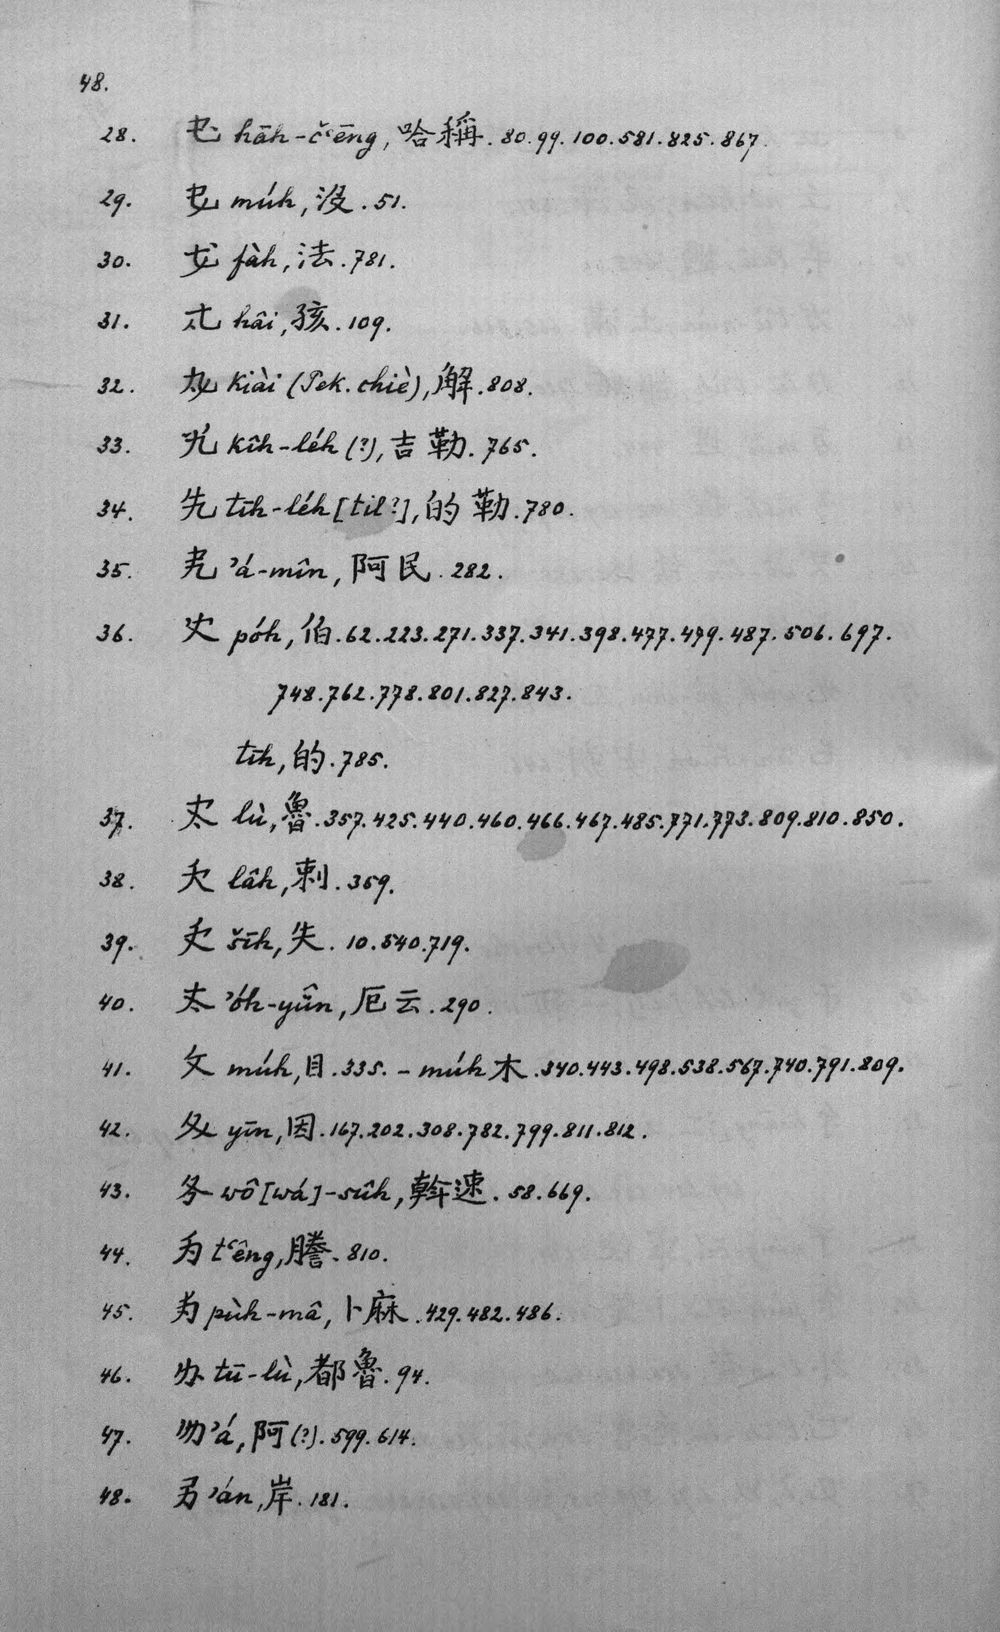 48.
28. hāh-čʻēng, 哈稱. 80. 99. 100. 581. 825. 867.
29. múh, 没. 51.
30. fàh, 法. 781.
31. hâi, 孩. 109.
32. kiài (Pek. chiè), 解. 808.
33. kîh-léh (?), 吉勒. 765.
34. tīh-léh [til?], 的勒. 780.
35. ʼá-mîn, 阿民. 282.
36. póh, 伯. 62. 223. 271. 337. 341. 398. 477. 479. 487. 506. 697.
748. 762. 778. 801. 827. 843.
tīh, 的. 785.
37. lù, 魯. 357. 425. 440. 460. 466. 467. 485. 771. 773. 809. 810. 850.
38. lâh, 剌. 359.
39. šīh, 失. 10. 540. 719.
40. ʼóh-yûn, 厄云. 290.
41. múh, 目. 335. – múh 木. 340. 443. 498. 538. 567. 740. 791. 809.
42. yīn, 因. 167. 202. 308. 782. 799. 811. 812.
43. wô [wá]-sûh, 斡速. 58. 669.
44. tʻêng, 謄. 810.
45. pùh-mâ, 卜麻. 429. 482. 486.
46. tū-lù, 都魯. 94.
47. ʼá, 阿 (?). 599. 614.
48. ʼán, 岸. 181.